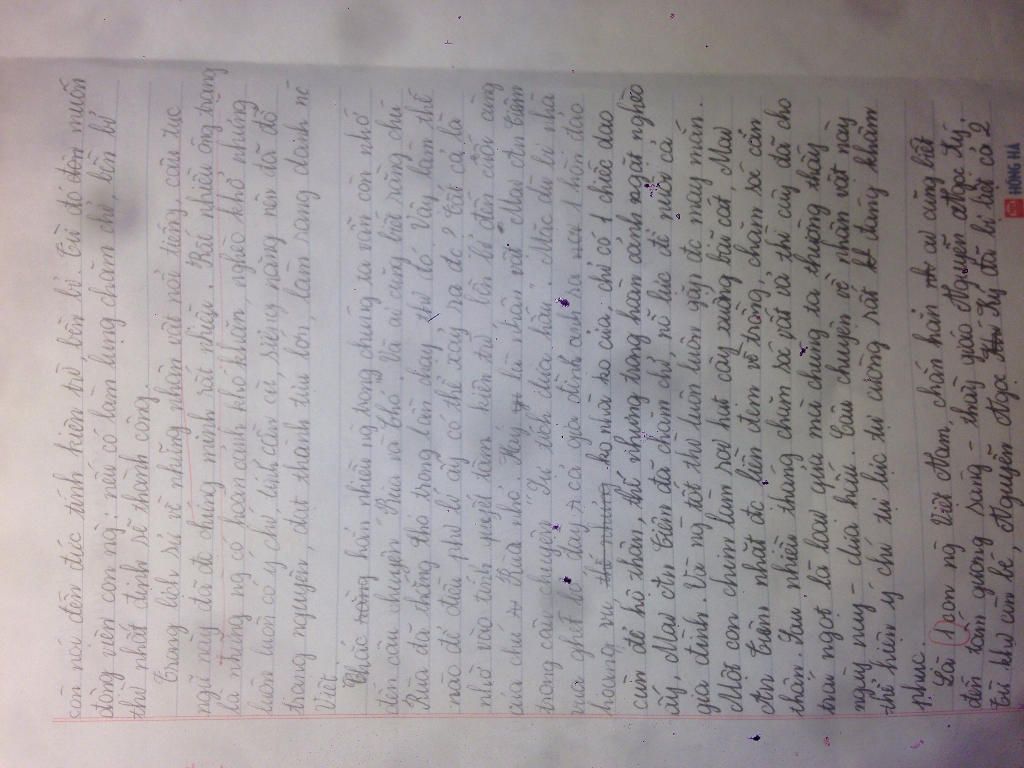 còn nói đến đức tính kiên trì, bền bỉ. Từ đó đến muốn
động viên con ng, nếu có lòng chăm chỉ, bền bỉ
thì nhất định sẽ thành công.
Trong lịch sử về những nhân vật nổi tiếng, câu tục
ngữ này đã đc chứng minh rất nhiều. Rất nhiều ông trạng
là những ng có hoàn cảnh khó khăn, nghèo khổ nhưng
luôn luôn có ý chí, tính cần cù siêng năng nên đã đỗ
trạng nguyên, đạt thành tựu lớn, làm rạng danh nc
Việt.
Chắc hẳn nhiều ng trong chúng ta vẫn còn nhớ
đến câu chuyện "Rùa và Thỏ". Và ai cũng biết rằng chú
Rùa đã thắng thỏ trong lần chạy thi đó. Vậy làm thế
nào để điều phi lí ấy có thể xảy ra đc? Tất cả là
nhờ vào tính quyết tâm kiên trì, bền bỉ đến cuối cùng
của chú Rùa nhỏ. Hay từ nhân vật Mai An Tiêm
trong câu chuyện "Sự tích dưa hấu". Mặc dù bị nhà
vua ghét bỏ đày cả gia đình anh ra 1 hòn đảo
hoang vu họ nhà vua của, chỉ có 1 chiếc dao
cùn để hộ thân, thế nhưng trong hoàn cảnh ngặt nghèo
ấy, Mai An Tiêm đã chăm chỉ, nỗ lực để nuôi cả
gia đình. Và ng tốt thì luôn luôn gặp đc may mắn.
Một con chim làm rơi hạt cây xuống bãi cát, Mai
An Tiêm nhặt đc liền đem về trồng, chăm sóc cẩn
thận. Sau nhiều tháng chăm sóc vất vả thì cây đã cho
trái ngọt là loại quả mà chúng ta thường thấy
ngày nay - dưa hấu. Câu chuyện về nhân vật này
thể hiện ý chí tự lực tự cường rất đáng khâm
phục.
Là 1 con ng Việt Nam, chắc hẳn ai cũng biết
đến tấm gương sáng - thầy giáo Nguyễn Ngọc Ký.
Từ khi còn bé, Nguyễn Ngọc Ký đã bị liệt cả 2
HỒNG HÀ